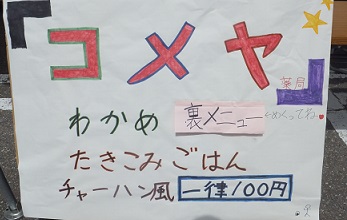 「コメヤ」
薬局
わかめ 裏メニュー ←めくってね。
たきこみごはん
チャーハン風 一律100円